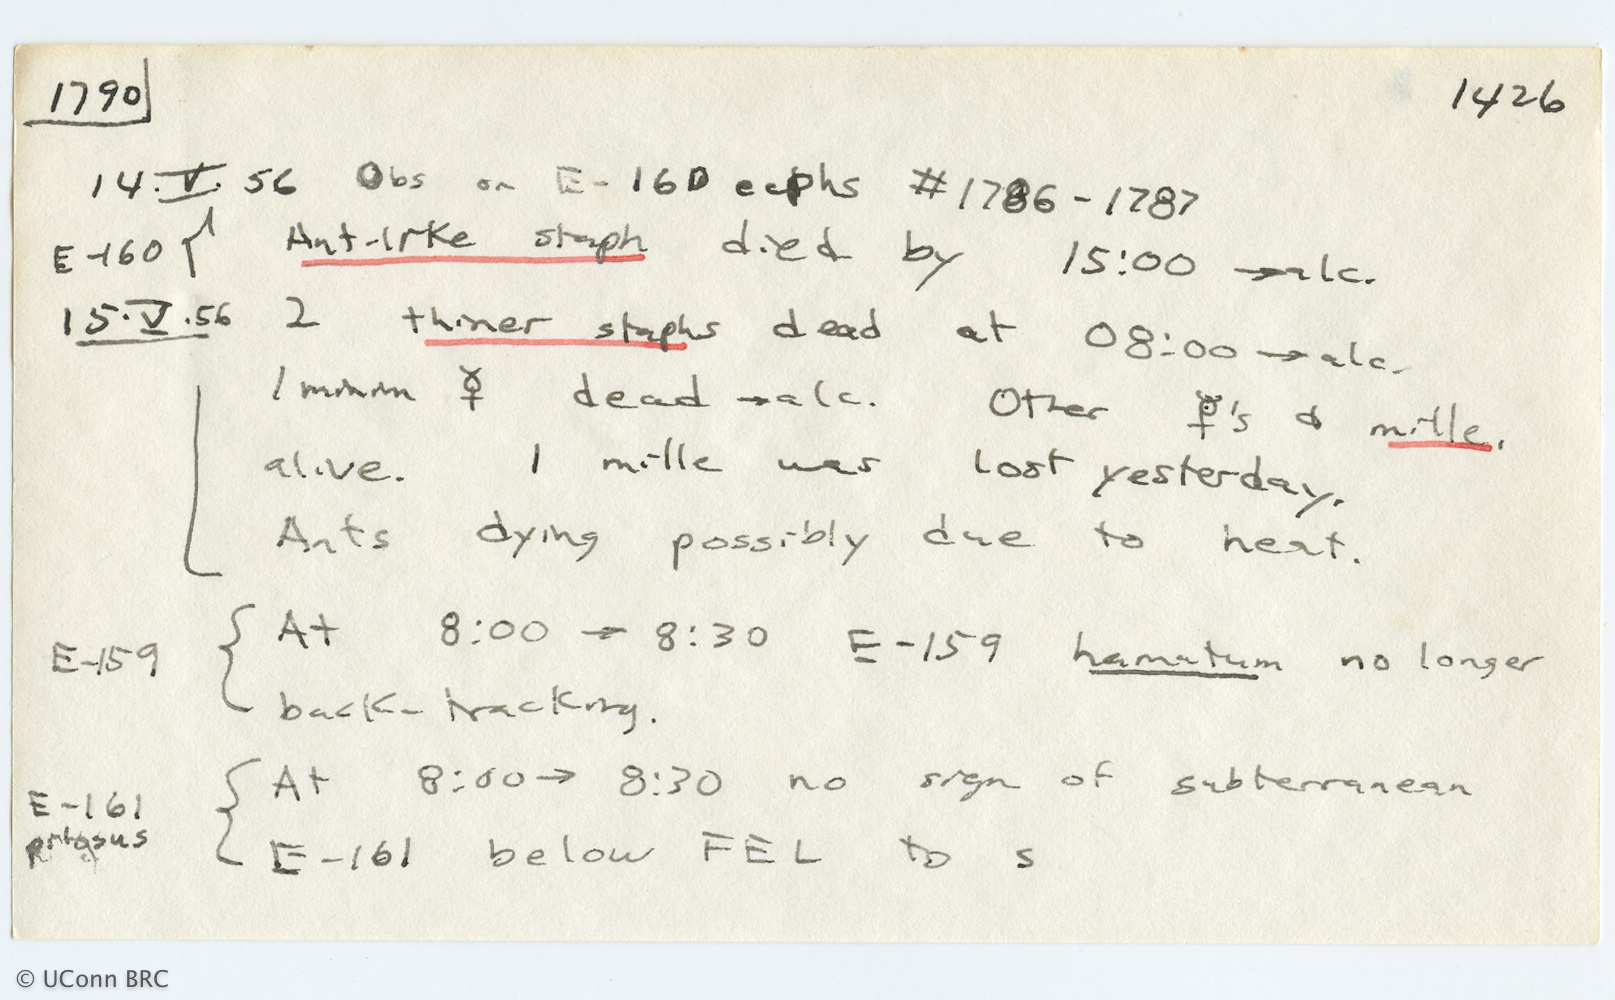 1790 1426
14.V.56 Obs on E-160 ecphs #1786-1787
E-160 { Ant-like staph died by 15:00 → alc.
15.V.56 2 thiner staphs dead at 08:00 → alc.
1 minim ☿ dead → alc. Other ☿'s & mille.
alive. 1 mille was lost yesterday.
Ants dying possibly due to heat.
E-159 { At 8:00 → 8:30 E-159 hamatum no longer
back-tracking.
E-161 { At 8:00 → 8:30 no sign of subterranean
E-161 below FEL to s
© UConn BRC